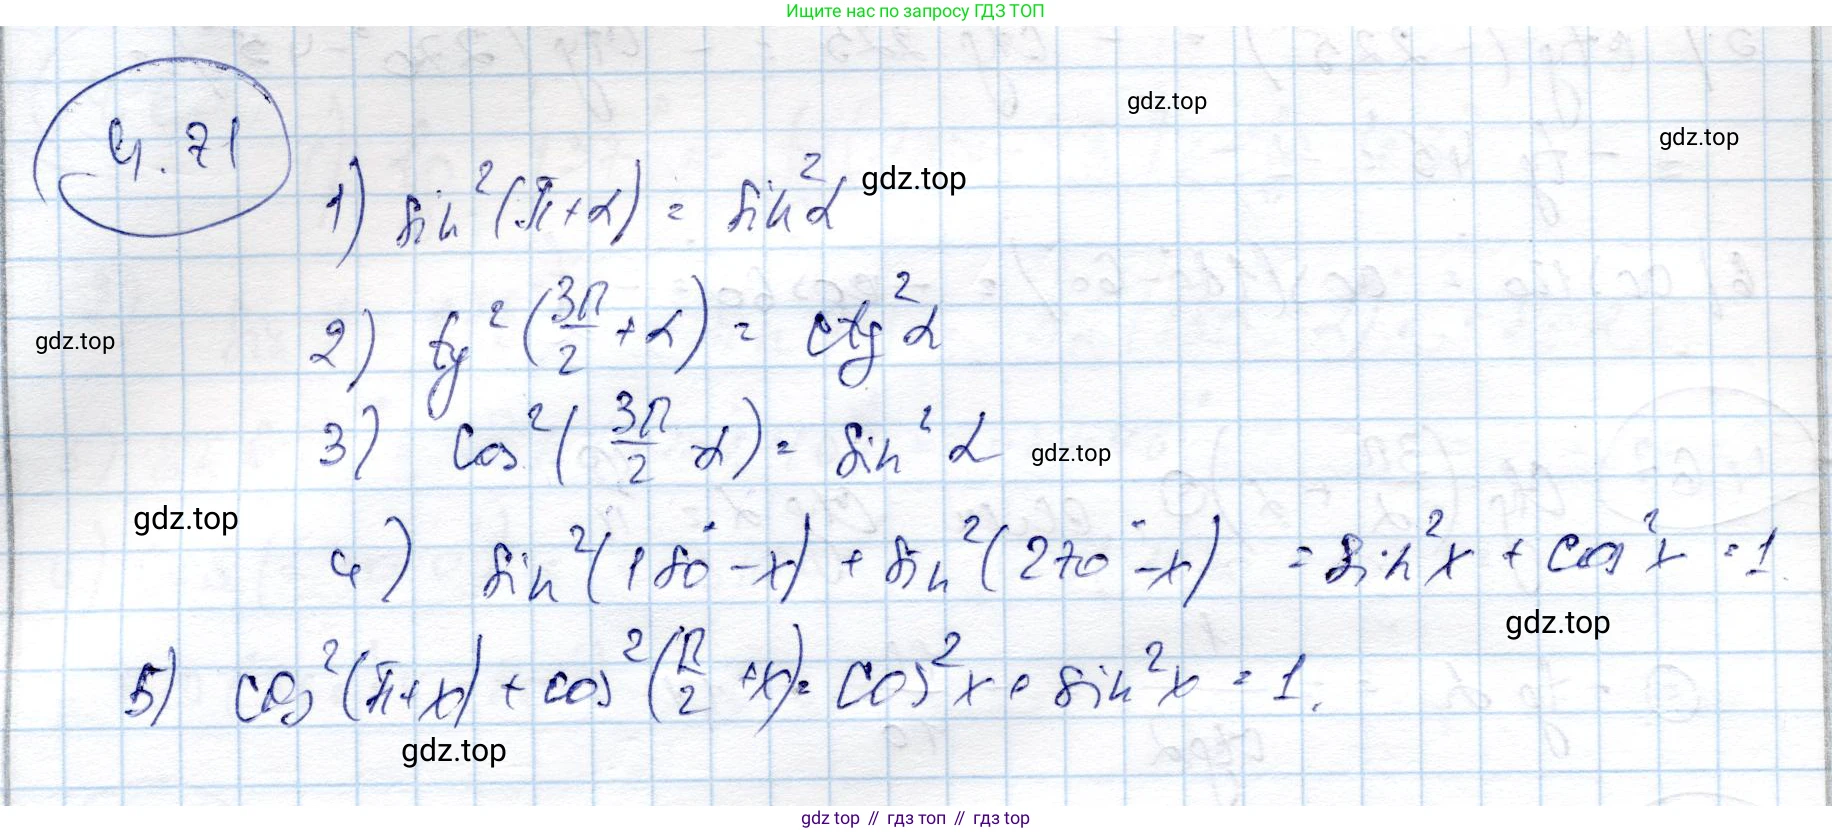 Ищите нас по запросу ГДЗ ТОП
4.71
gdz.top
gdz.top
1) sin²(π+α) = sin²α
gdz.top
2) tg²(3π/2 + α) = ctg²α
gdz.top
3) cos²(3π/2 - α) = sin²α
gdz.top
gdz.top
4) sin²(180°-x) + sin²(270°-x) = sin²x + cos²x = 1.
gdz.top
5) cos²(π+x) + cos²(π/2 + x) = cos²x + sin²x = 1.
gdz.top
gdz top // гдз топ // гдз top